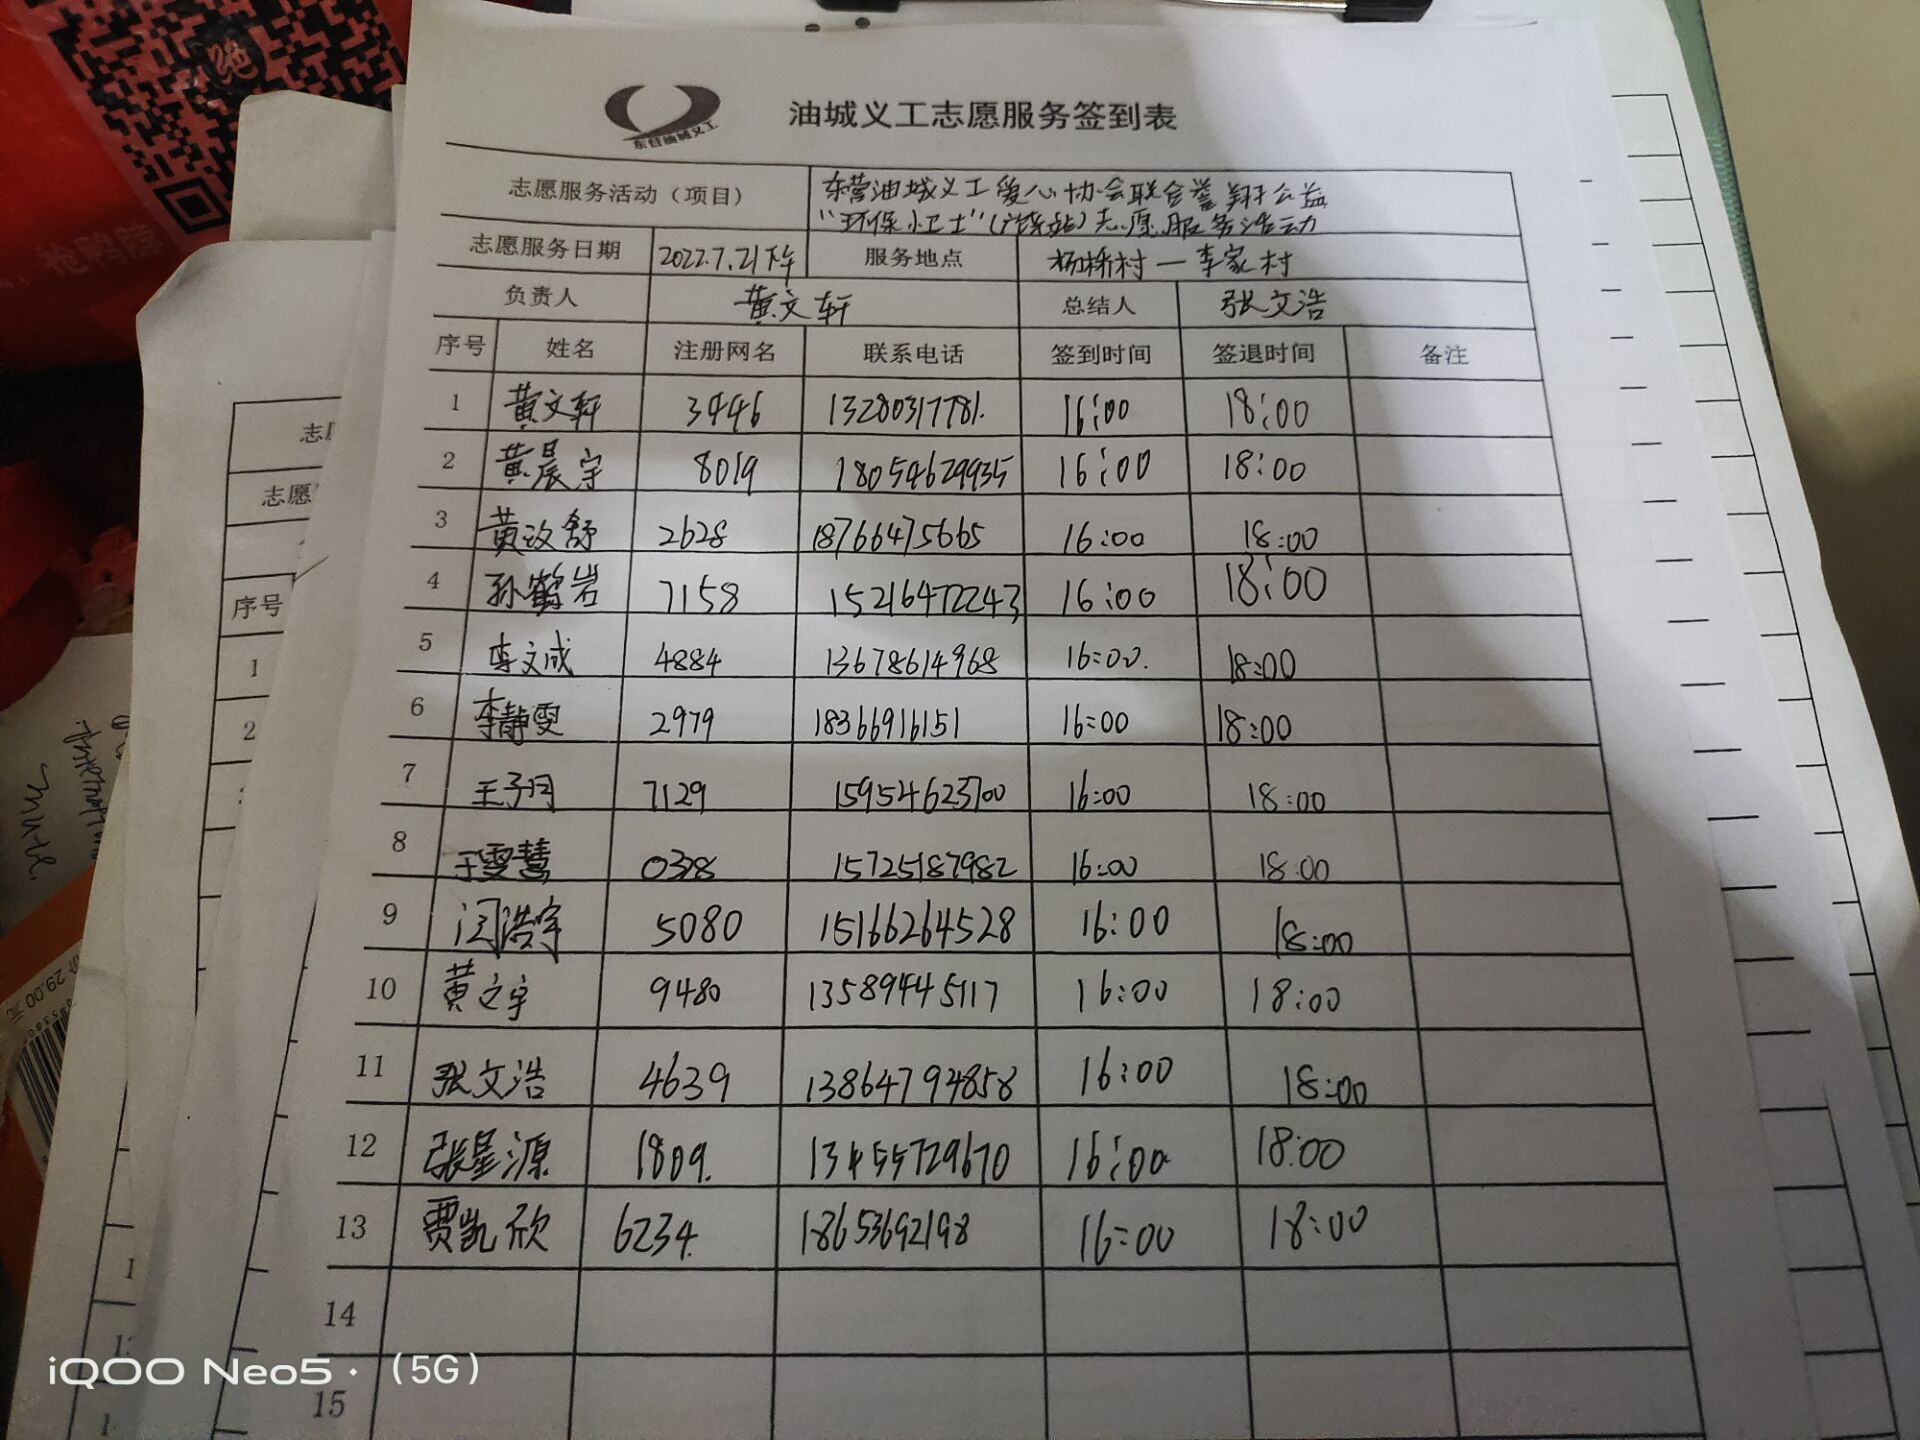 绝
东营油城义工
油城义工志愿服务签到表
志愿服务活动（项目） 东营油城义工爱心协会联合誉翔公益
"环保小卫士"(广饶站)志愿服务活动
志愿服务日期 2022.7.21下午 服务地点 杨桥村—李家村
负责人 黄文轩 总结人 张文浩
序号 姓名 注册网名 联系电话 签到时间 签退时间 备注
1 黄文轩 3446 13280317781. 16:00 18:00
2 黄晨宇 8019 18054629935 16:00 18:00
3 黄玫舒 2628 18766475665 16:00 18:00
4 孙鹤岩 7158 15216472243 16:00 18:00
5 李文成 4884 13678614968 16:00. 18:00
6 李静雯 2979 18366916151 16:00 18:00
7 王子月 7129 15954623700 16:00 18:00
8 于雯慧 15725187982 16:00 18:00
9 闫浩宇 5080 15166264528 16:00 18:00
10 黄文宇 9480 13589445117 16:00 18:00
11 张文浩 4639 13864794858 16:00 18:00
12 张星源 1809. 13455729670 16:00 18:00
13 贾凯欣 6234. 18653692198 16:00 18:00
14
15
志愿
序号
1
2
29.00 元
iQOO Neo5 · (5G)